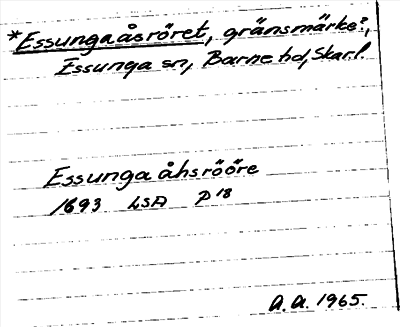 *Essungaåsröret, gränsmärke?,
Essunga sn, Barne hd, Skarl.
Essunga åhsrööre
1693 LSA P 18
A.A. 1965.